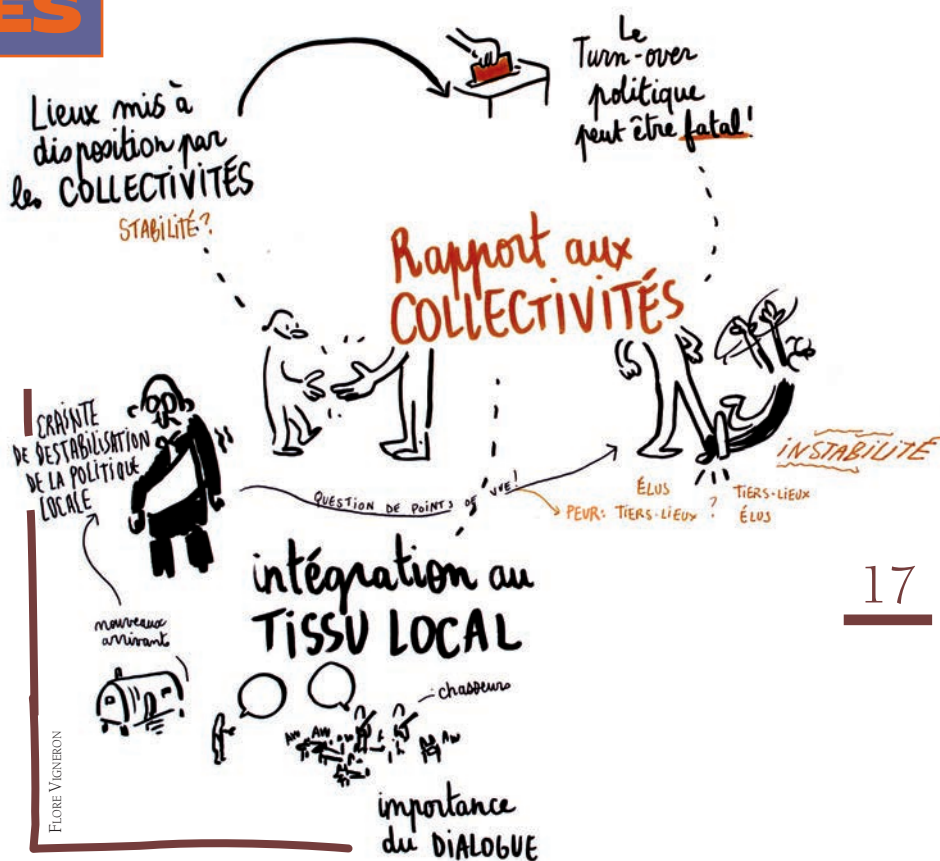 ES
Lieux mis à
disposition par
les COLLECTIVITÉS
STABILITÉ?
Le
Turn-over
politique
peut être fatal!
Rapport aux
COLLECTIVITÉS
CRAINTE
DE DESTABILISATION
DE LA POLITIQUE
LOCALE
QUESTION DE POINTS DE VUE!
INSTABILITÉ
ÉLUS TIERS-LIEUX
PEUR: TIERS-LIEUX ? ÉLUS
intégration au
TISSU LOCAL
nouveaux
arrivant
chasseurs
AW AW AW
importance
du DIALOGUE
17
FLORE VIGNERON